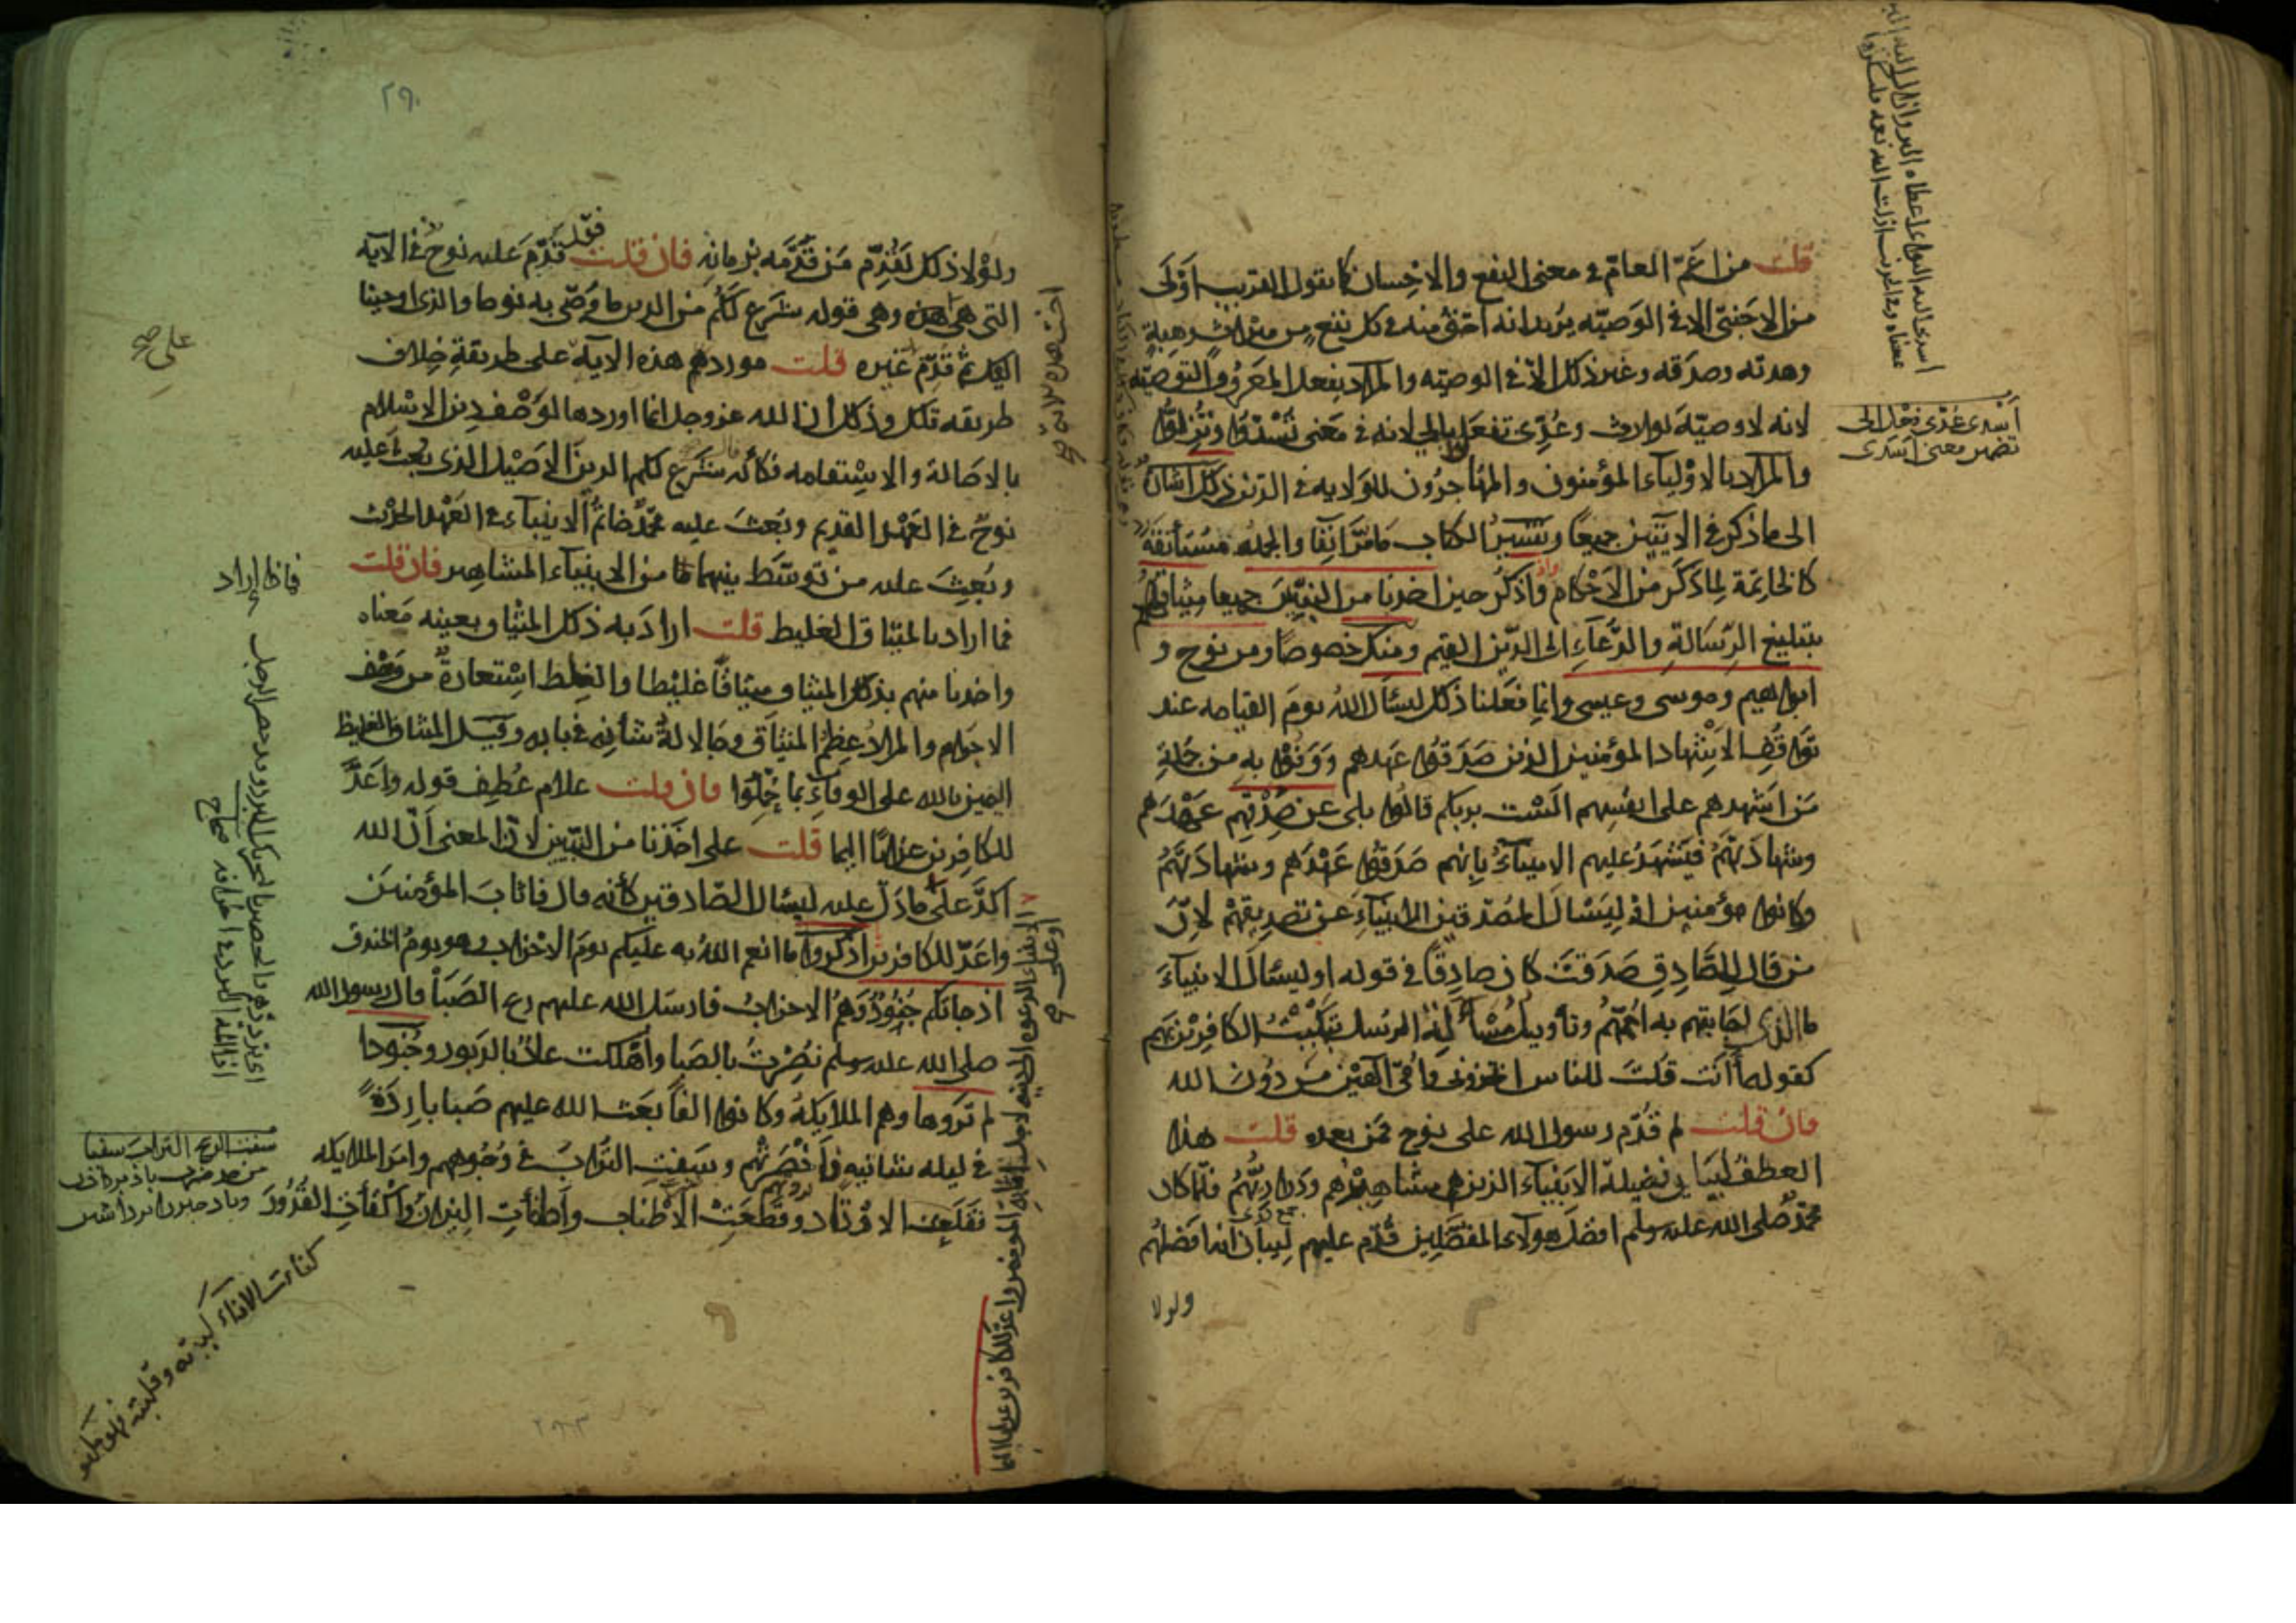 قلت من اعم العام في معنى النفع والاحسان كما تقول القريب اولى
من الاجنبي الا في الوصية يريد انه احق منه في كل نفع من ميراث وهبة
وهدية وصدقة وغير ذلك الا في الوصية والمراد بفعل المعروف التوصية
لانه لا وصية لوارث وعدى تفعلوا بالى لانه في معنى تسدوا وتزلوا
والمراد بالاولياء المؤمنون والمهاجرون للولاية في الدين ذلك اشارة
الى ما ذكر في الايتين جميعا وتفسير الكتاب ما مر انفا والجملة مستأنفة
كالخاتمة لما ذكر من الاحكام واذكر حين اخذنا من النبيين جميعا ميثاقهم
بتبليغ الرسالة والدعاء الى الدين القيم ومنك خصوصا ومن نوح و
ابراهيم وموسى وعيسى وانما فعلنا ذلك ليسأل الله يوم القيامة عند
تواقف الاشهاد المؤمنين الذين صدقوا عهدهم ووفوا به من جملة
من اشهدهم على انفسهم الست بربكم قالوا بلى عن صدقهم عهدهم
وشهادتهم فيشهد عليهم الانبياء بانهم صدقوا عهدهم وشهادتهم
وكانوا مؤمنين او ليسأل المصدقين للانبياء عن تصديقهم لان
من قال للصادق صدقت كان صادقا في قوله او ليسأل الانبياء
ما الذي اجابتهم به اممهم وتأويل مسألة الرسل تبكيت الكافرين بهم
كقوله أأنت قلت للناس اتخذوني وامي الهين من دون الله
فان قلت لم قدم رسول الله على نوح فمن بعده قلت هذا
العطف لبيان فضيلة الانبياء الذين هم مشاهيرهم وذراريهم فلما كان
محمد صلى الله عليه وسلم افضل هؤلاء المفضلين قدم عليهم لبيان انه افضلهم
ولولا
اسدى عدى فعل الى
تضمن معنى اسدى
٢٩٠
ولولا ذلك لقدم من قدمه بزمانه فان قلت فقد قدم عليه نوح في الاية
التي هي اخت هذه وهي قوله شرع لكم من الدين ما وصى به نوحا والذي اوحينا
اليك ثم قدم غيره قلت مورد هذه الاية على طريقة خلاف
طريقة تلك وذلك ان الله عز وجل انما اوردها لوصف دين الاسلام
بالاصالة والاستقامة فكأنه قال شرع لكم الدين الاصيل الذي بعث عليه
نوح في العهد القديم وبعث عليه محمد خاتم الانبياء في العهد الحديث
وبعث عليه من توسط بينهما من الانبياء المشاهير فان قلت
فما اراد بالميثاق الغليظ قلت اراد به ذلك الميثاق بعينه معناه
واخذنا منهم بذلك الميثاق ميثاقا غليظا والغلظ استعارة من وصف
الاجرام والمراد عظم الميثاق وجلالة شأنه في بابه وقيل الميثاق الغليظ
اليمين بالله على الوفاء بما حملوا فان قلت علام عطف قوله واعد
للكافرين عذابا اليما قلت على اخذنا من النبيين لان المعنى ان الله
اكد على
او على ما دل عليه ليسأل الصادقين كأنه قال فاثاب المؤمنين
واعد للكافرين اذكروا ما انعم الله به عليكم يوم الاحزاب وهو يوم الخندق
اذ جاءتكم جنود وهم الاحزاب فارسل الله عليهم ريح الصبا قال رسول الله
صلى الله عليه وسلم نصرت بالصبا واهلكت عاد بالدبور وجنودا
لم تروها وهم الملايكة وكانوا الفا بعث الله عليهم صبا باردة
في ليلة شاتية فاخصرتهم وسفت التراب في وجوههم وامر الملايكة
فقلعت الاوتاد وقطعت الاطناب واطفأت النيران واكفأت القدور
الانبياء الدعوة الى دينه لاجل اثابة المؤمنين واعد للكافرين عذابا اليما
سفت الريح التراب سفيا
كفأت الاناء كببته وقلبته فهو مكفو